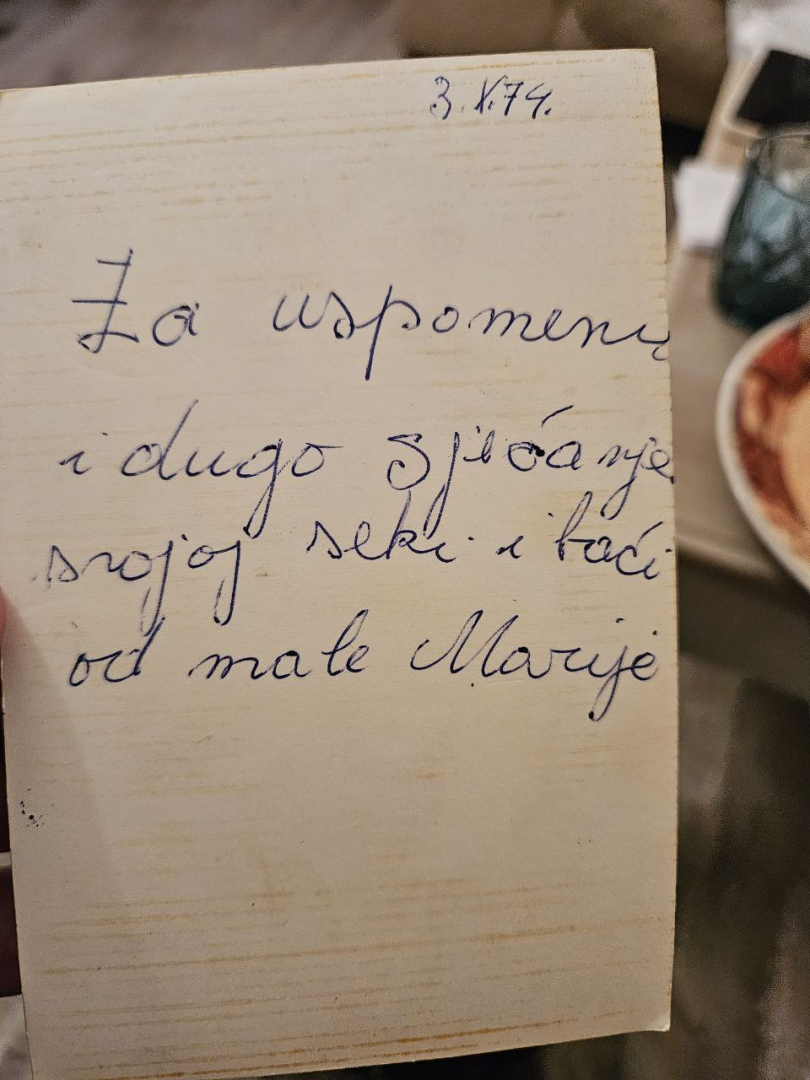 3.X.74.
Za uspomenu
i dugo sjećanje
svojoj seki i baći
od male Marije